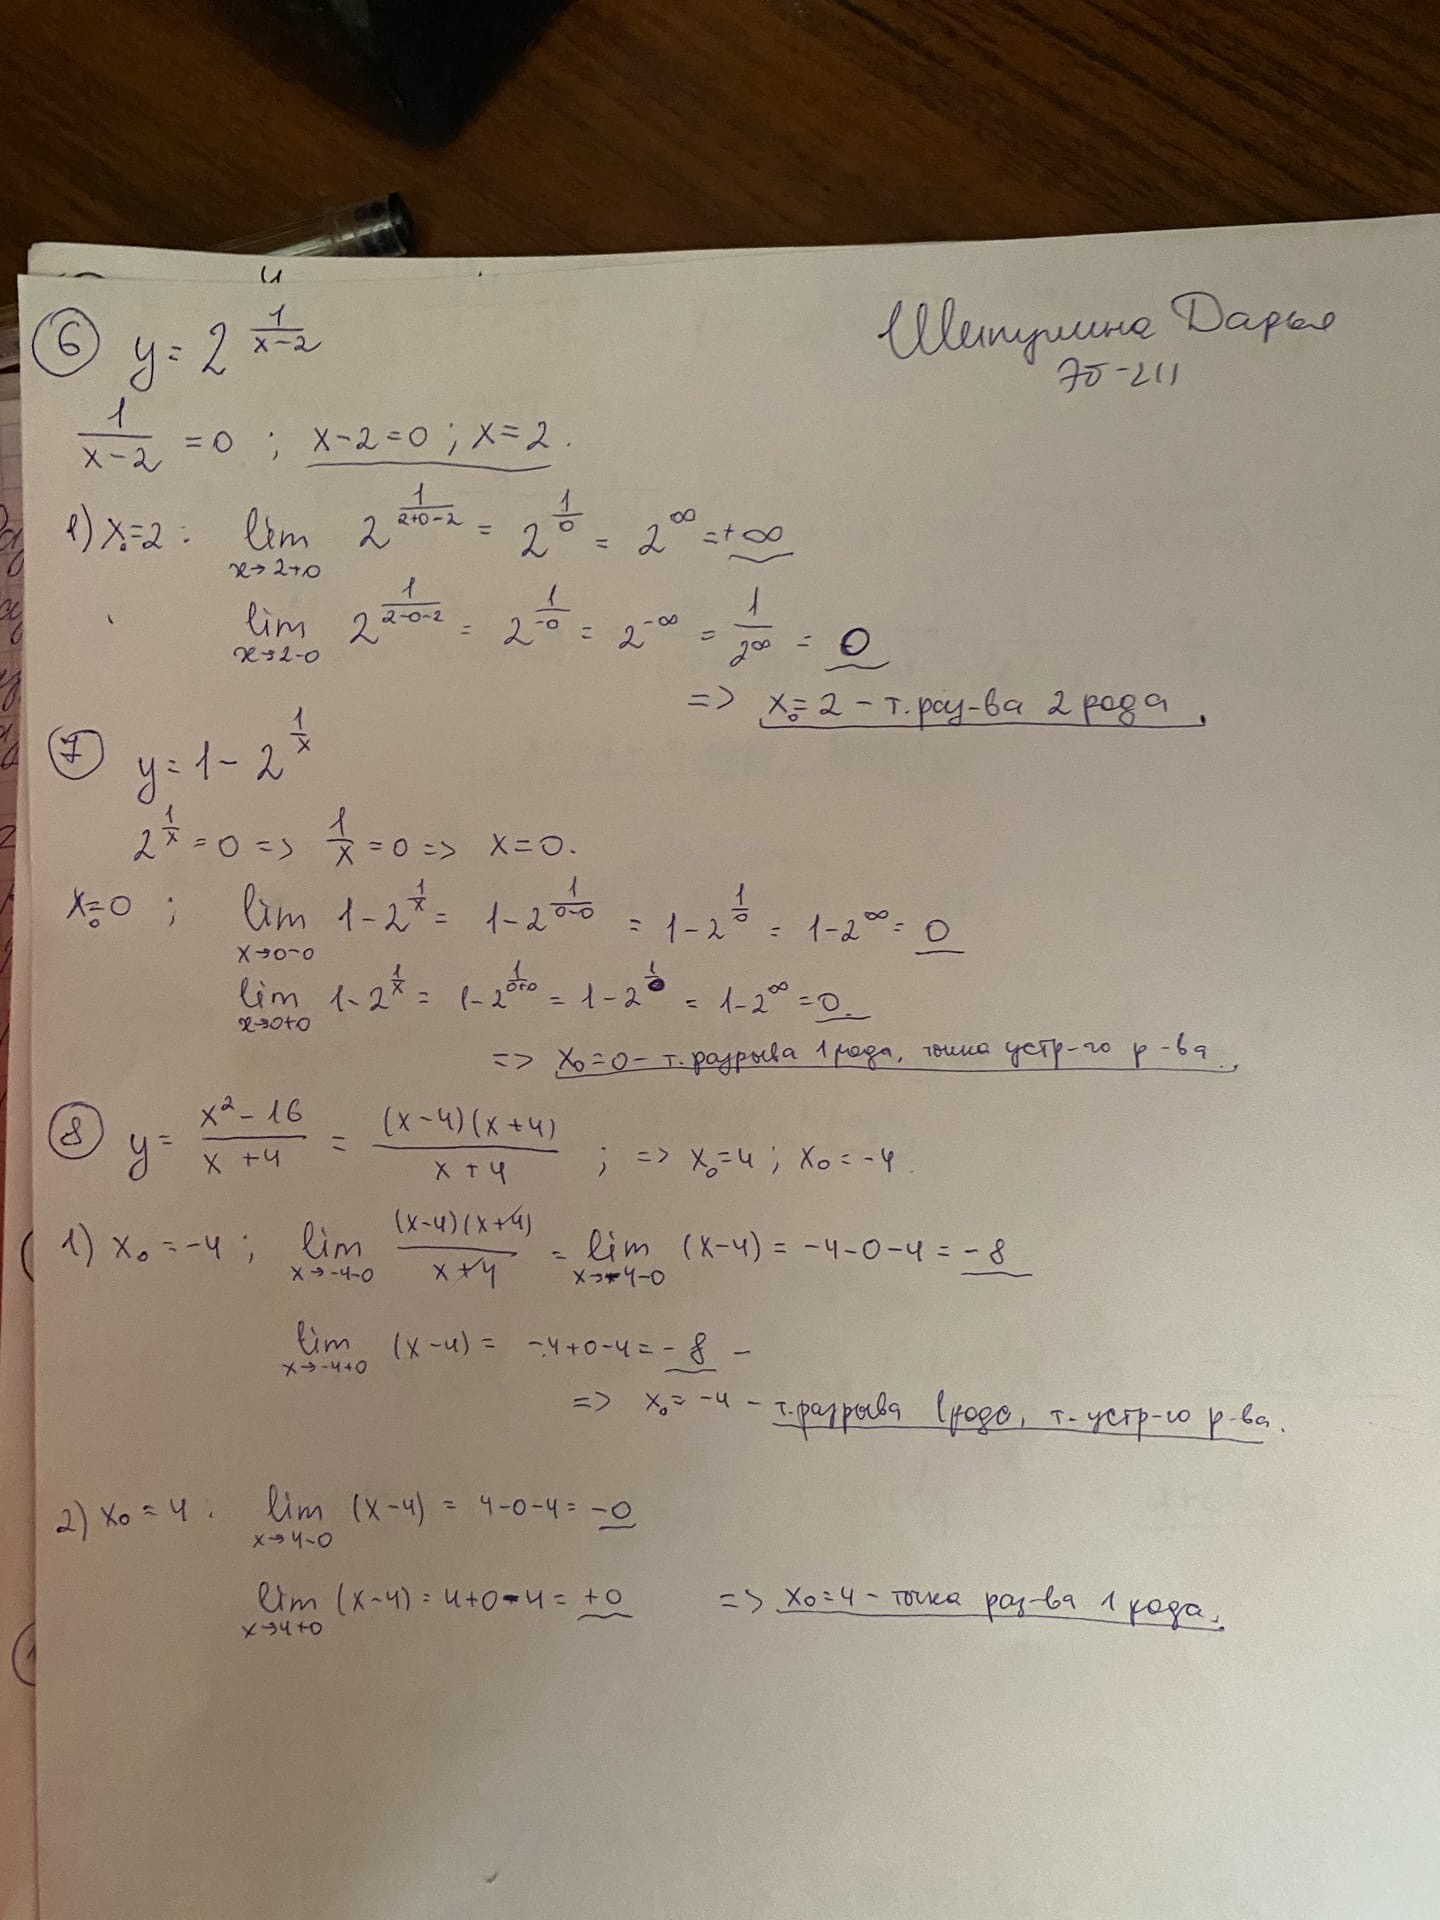 Шепулина Дарья
ЭБ-211
⑥ y = 2^{\frac{1}{x-2}}
\frac{1}{x-2} = 0 ; x-2=0 ; x=2.
1) x₀=2 : \lim_{x→2+0} 2^{\frac{1}{2+0-2}} = 2^{\frac{1}{0}} = 2^{∞} = +∞
\lim_{x→2-0} 2^{\frac{1}{2-0-2}} = 2^{\frac{1}{-0}} = 2^{-∞} = \frac{1}{2^{∞}} = 0
=> x₀=2 – т.раз-ва 2 рода.
⑦ y = 1 - 2^{\frac{1}{x}}
2^{\frac{1}{x}} = 0 => \frac{1}{x} = 0 => x=0.
x₀=0 ; \lim_{x→0-0} 1-2^{\frac{1}{x}} = 1-2^{\frac{1}{0-0}} = 1-2^{\frac{1}{0}} = 1-2^{∞} = 0
\lim_{x→0+0} 1-2^{\frac{1}{x}} = 1-2^{\frac{1}{0+0}} = 1-2^{\frac{1}{0}} = 1-2^{∞} = 0.
=> x₀=0 – т.разрыва 1 рода, точка устр-го р-ва.
⑧ y = \frac{x²-16}{x+4} = \frac{(x-4)(x+4)}{x+4} ; => x₀=4 ; x₀=-4.
1) x₀=-4 ; \lim_{x→-4-0} \frac{(x-4)(x+4)}{x+4} = \lim_{x→-4-0} (x-4) = -4-0-4 = -8
\lim_{x→-4+0} (x-4) = -4+0-4 = -8 –
=> x₀=-4 – т.разрыва 1 рода, т. устр-го р-ва.
2) x₀=4 : \lim_{x→4-0} (x-4) = 4-0-4 = -0
\lim_{x→4+0} (x-4) = 4+0-4 = +0 => x₀=4 – точка раз-ва 1 рода.